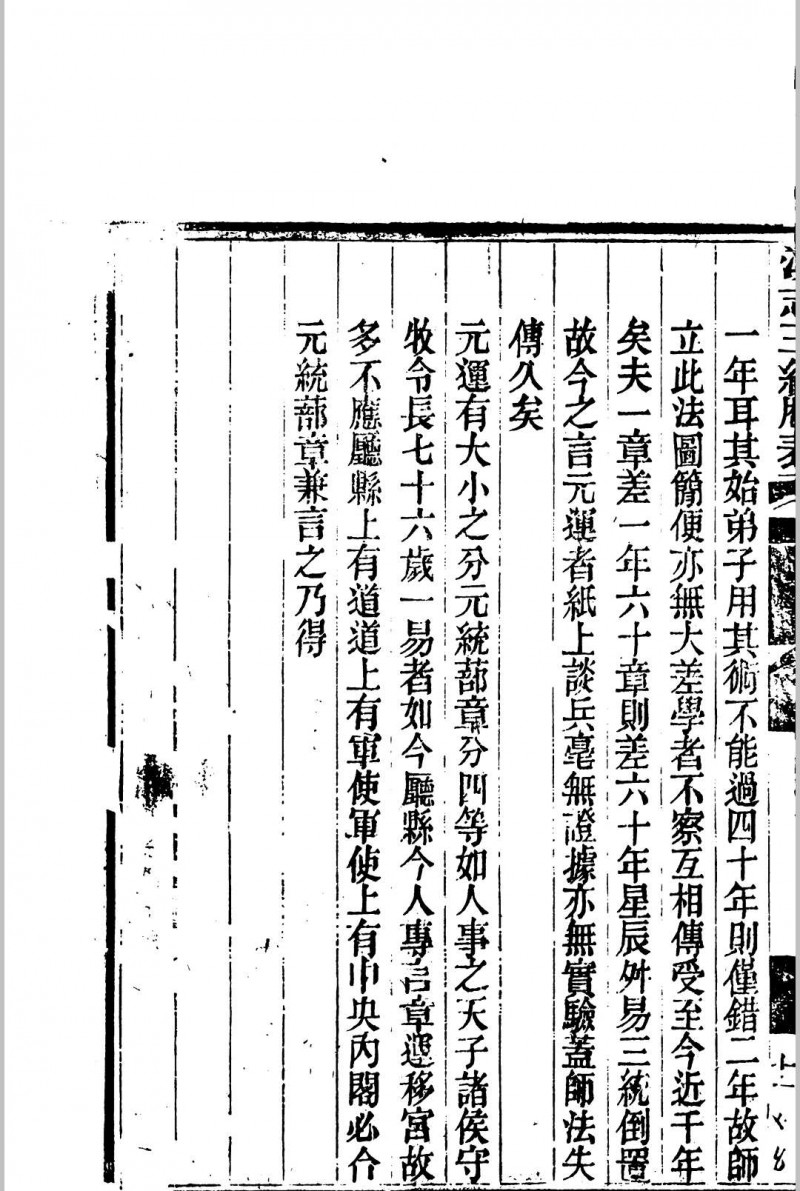 一年耳其始弟子用其術不能過四十年則僅錯二年故師
立此法圖簡便亦無大差學者不察互相傳受至今近千年
矣夫一章差一年六十章則差六十年星辰舛易三統倒置
故今之言元運者紙上談兵毫無證據亦無實驗蓋師法失
傳久矣
元運有大小之分元統蔀章分四等如人事之天子諸侯守
牧令長七十六歲一易者如今廳縣今人專言章運移宮故
多不應廳縣上有道道上有軍使軍使上有中央內閣必合
元統蔀章兼言之乃得